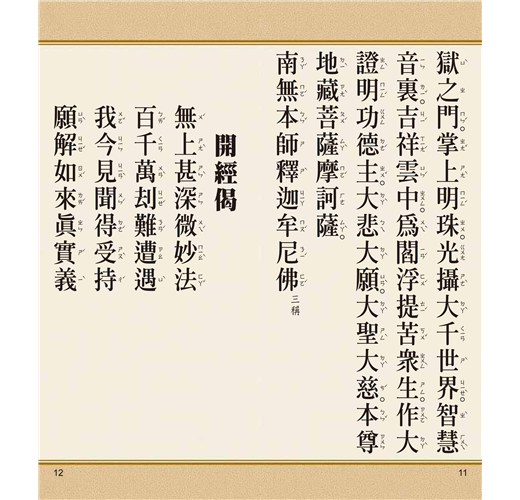 獄之門。掌上明珠。光攝大千世界。智慧
音裏。吉祥雲中。為閻浮提苦眾生。作大
證明功德主。大悲大願。大聖大慈。本尊
地藏菩薩摩訶薩。
南無本師釋迦牟尼佛 三稱
開經偈
無上甚深微妙法
百千萬劫難遭遇
我今見聞得受持
願解如來眞實義
11
12